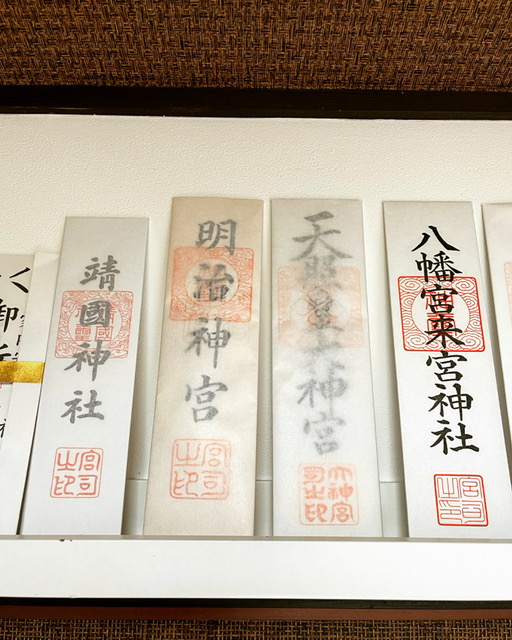 八幡宮来宮神社
天照皇大神宮
大神宮
司之印
明治神宮
宮司
之印
靖國神社
宮司
之印